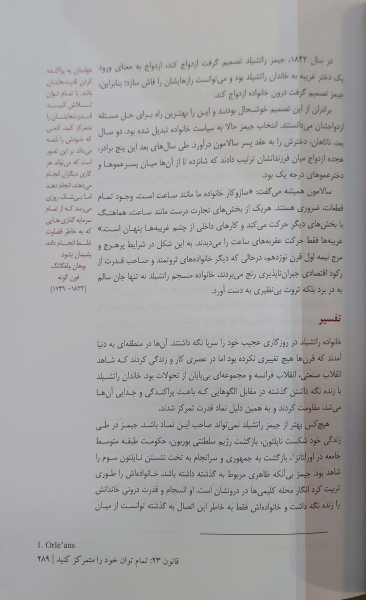 در سال ۱۸۲۴، جیمز راتشیلد تصمیم گرفت ازدواج کند، ازدواج به معنای ورود
یک دختر غریبه به خاندان راتشیلد بود و می‌توانست رازهایشان را فاش سازد؛ بنابراین،
جیمز تصمیم گرفت درون خانواده ازدواج کند.
برادران از این تصمیم خوشحال بودند و این را بهترین راه برای حل مسئله
ازدواجشان می‌دانستند. انتخاب جیمز حالا به سیاست خانواده تبدیل شده بود. دو سال
بعد، ناتاهان، دخترش را به عقد پسر سالامون درآورد. طی سال‌های بعد این پنج برادر،
هجده ازدواج میان فرزندانشان ترتیب دادند که شانزده تا از آن‌ها میان پسرعموها و
دخترعموهای درجه یک بود.
سالامون همیشه می‌گفت: «سازوکار خانواده ما مانند ساعت است. وجود تمام
قطعات، ضروری هستند. هریک از بخش‌های تجارت درست مانند ساعت، هماهنگ
با بخش‌های دیگر حرکت می‌کند و کارهای داخلی از چشم غریبه‌ها پنهان است.»
غریبه‌ها فقط حرکت عقربه‌های ساعت را می‌دیدند. به این شکل در شرایط پرهرج و
مرج نیمه اول قرن نوزدهم، درحالی که دیگر خانواده‌های ثروتمند و صاحب قدرت از
رکود اقتصادی جبران‌ناپذیری رنج می‌بردند، خانواده منسجم راتشیلد نه تنها جان سالم
به در برد بلکه ثروت بی‌نظیری به دست آورد.
تفسیر
خانواده راتشیلد در روزگاری عجیب خود را سرپا نگه داشتند. آن‌ها در منطقه‌ای به دنیا
آمدند که قرن‌ها هیچ تغییری نکرده بود اما در عصری کار و زندگی کردند که شاهد
انقلاب صنعتی، انقلاب فرانسه و مجموعه‌ای بی‌پایان از تحولات بود. خاندان راتشیلد
با زنده نگه داشتن گذشته در مقابل الگوهایی که باعث پراکندگی و جدایی آن‌ها
می‌شد، مقاومت کردند و به همین دلیل نماد قدرت تمرکز شدند.
هیچ‌کس بهتر از جیمز راتشیلد نمی‌تواند صاحب این نماد باشد. جیمز در طی
زندگی خود شکست ناپلئون، بازگشت رژیم سلطنتی بوربون، حکومت طبقه متوسط
جامعه در اورلئانز۱، بازگشت به جمهوری و سرانجام به تخت نشستن ناپلئون سوم را
شاهد بود. جیمز بی‌آنکه ظاهری مربوط به گذشته داشته باشد، خانواده‌اش را طوری
تربیت کرد انگار محله کلیمی‌ها در درونشان است. او انسجام و قدرت درونی خاندانش
را زنده نگه داشت و خانواده‌اش فقط به خاطر این اتصال به گذشته توانست از میان
حواستان به پراکنده
کردن قدرت‌هایتان
باشد. با تمام توان
تلاش کنید
قدرت‌هایتان را
متمرکز کنید. آدمی
که خودش را نابغه
می‌داند بر این تصور
است که می‌تواند هر
کاری دیگران انجام
می‌دهند، انجام دهد
اما بی‌شک روزی
می‌رسد که از تمام
سرمایه گذاری‌هایی
که به خاطر قضاوت
غلط انجام داده،
پشیمان بشود.
یوهان ولفگانگ
فون گوته
(۱۷۴۹- ۱۸۳۲)
1. Orle'ans
قانون ۲۳: تمام توان خود را متمرکز کنید | ۲۸۹